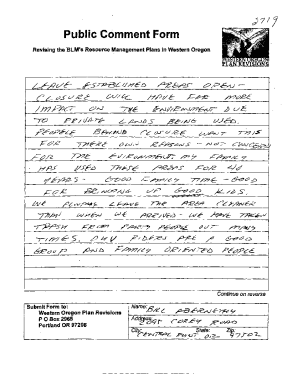 3719
Public Comment Form
Revising the BLM's Resource Management Plans in Western Oregon
WESTERN OREGON
PLAN REVISIONS
LEAVE ESTABLISHED AREAS OPEN -
CLOSURE WILL HAVE FAR MORE
IMPACT ON THE ENVIRONMENT DUE
TO PRIVATE LANDS BEING USED.
PEOPLE BEHIND CLOSURE WANT THIS
FOR THERE OWN REASONS - NOT CONCERN
FOR THE ENVIRONMENT. MY FAMILY
HAS USED THESE AREAS FOR 40
YEARS - GOOD FAMILY TIME - GOOD
FOR BRINGING UP GOOD KIDS.
WE ALWAYS LEAVE THE AREA CLEANER
THAN WHEN WE ARRIVED - WE HAVE TAKEN
TRASH FROM PARTY PEOPLE OUT MANY
TIMES, OHV RIDERS ARE A GOOD
GROUP AND FAMILY ORIENTED PEOPLE
Continue on reverse
Submit Form to:
Western Oregon Plan Revisions
P O Box 2965
Portland OR 97208
Name: BILL ABERNETHY
Address: COREY ROAD
City: CENTRAL POINT State: OR Zip: 97502